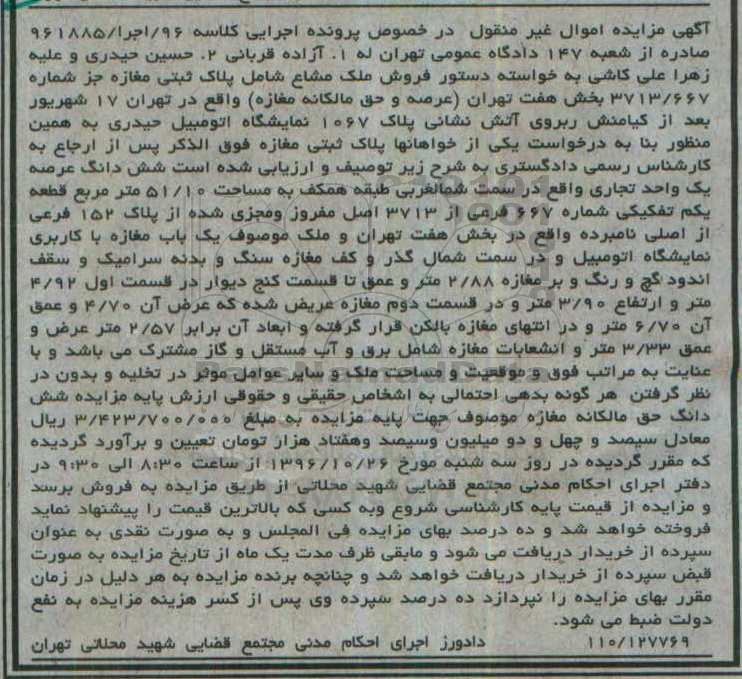 آگهی مزایده اموال غیر منقول در خصوص پرونده اجرایی کلاسه ۹۶/اجرا/۹۶۱۸۸۵
صادره از شعبه ۱۴۷ دادگاه عمومی تهران له ۱. آزاده قربانی ۲. حسین حیدری و علیه
زهرا علی کاشی به خواسته دستور فروش ملک مشاع شامل پلاک ثبتی مغازه جز شماره
۳۷۱۳/۶۶۷ بخش هفت تهران (عرصه و حق مالکانه مغازه) واقع در تهران ۱۷ شهریور
بعد از کیامنش ربروی آتش نشانی پلاک ۱۰۶۷ نمایشگاه اتومبیل حیدری به همین
منظور بنا به درخواست یکی از خواهانها پلاک ثبتی مغازه فوق الذکر پس از ارجاع به
کارشناس رسمی دادگستری به شرح زیر توصیف و ارزیابی شده است شش دانگ عرصه
یک واحد تجاری واقع در سمت شمالغربی طبقه همکف به مساحت ۵۱/۱۰ متر مربع قطعه
یکم تفکیکی شماره ۶۶۷ فرعی از ۳۷۱۳ اصل مفروز ومجزی شده از پلاک ۱۵۲ فرعی
از اصلی نامبرده واقع در بخش هفت تهران و ملک موصوف یک باب مغازه با کاربری
نمایشگاه اتومبیل و در سمت شمال گذر و کف مغازه سنگ و بدنه سرامیک و سقف
اندود گچ و رنگ و بر مغازه ۲/۸۸ متر و عمق تا قسمت کنج دیوار در قسمت اول ۴/۹۲
متر و ارتفاع ۳/۹۰ متر و در قسمت دوم مغازه عریض شده که عرض آن ۴/۷۰ و عمق
آن ۶/۷۰ متر و در انتهای مغازه بالکن قرار گرفته و ابعاد آن برابر ۲/۵۷ متر عرض و
عمق ۳/۳۳ متر و انشعابات مغازه شامل برق و آب مستقل و گاز مشترک می باشد و با
عنایت به مراتب فوق و موقعیت و مساحت ملک و سایر عوامل موثر در تخلیه و بدون در
نظر گرفتن هر گونه بدهی احتمالی به اشخاص حقیقی و حقوقی ارزش پایه مزایده شش
دانگ حق مالکانه مغازه موصوف جهت پایه مزایده به مبلغ ۳/۴۲۳/۷۰۰/۰۰۰ ریال
معادل سیصد و چهل و دو میلیون وسیصد وهفتاد هزار تومان تعیین و برآورد گردیده
که مقرر گردیده در روز سه شنبه مورخ ۱۳۹۶/۱۰/۲۶ از ساعت ۸:۳۰ الی ۹:۳۰ در
دفتر اجرای احکام مدنی مجتمع قضایی شهید محلاتی از طریق مزایده به فروش برسد
و مزایده از قیمت پایه کارشناسی شروع وبه کسی که بالاترین قیمت را پیشنهاد نماید
فروخته خواهد شد و ده درصد بهای مزایده فی المجلس و به صورت نقدی به عنوان
سپرده از خریدار دریافت می شود و مابقی ظرف مدت یک ماه از تاریخ مزایده به صورت
قبض سپرده از خریدار دریافت خواهد شد و چنانچه برنده مزایده به هر دلیل در زمان
مقرر بهای مزایده را نپردازد ده درصد سپرده وی پس از کسر هزینه مزایده به نفع
دولت ضبط می شود.
۱۱۰/۱۲۷۷۶۹ دادورز اجرای احکام مدنی مجتمع قضایی شهید محلاتی تهران